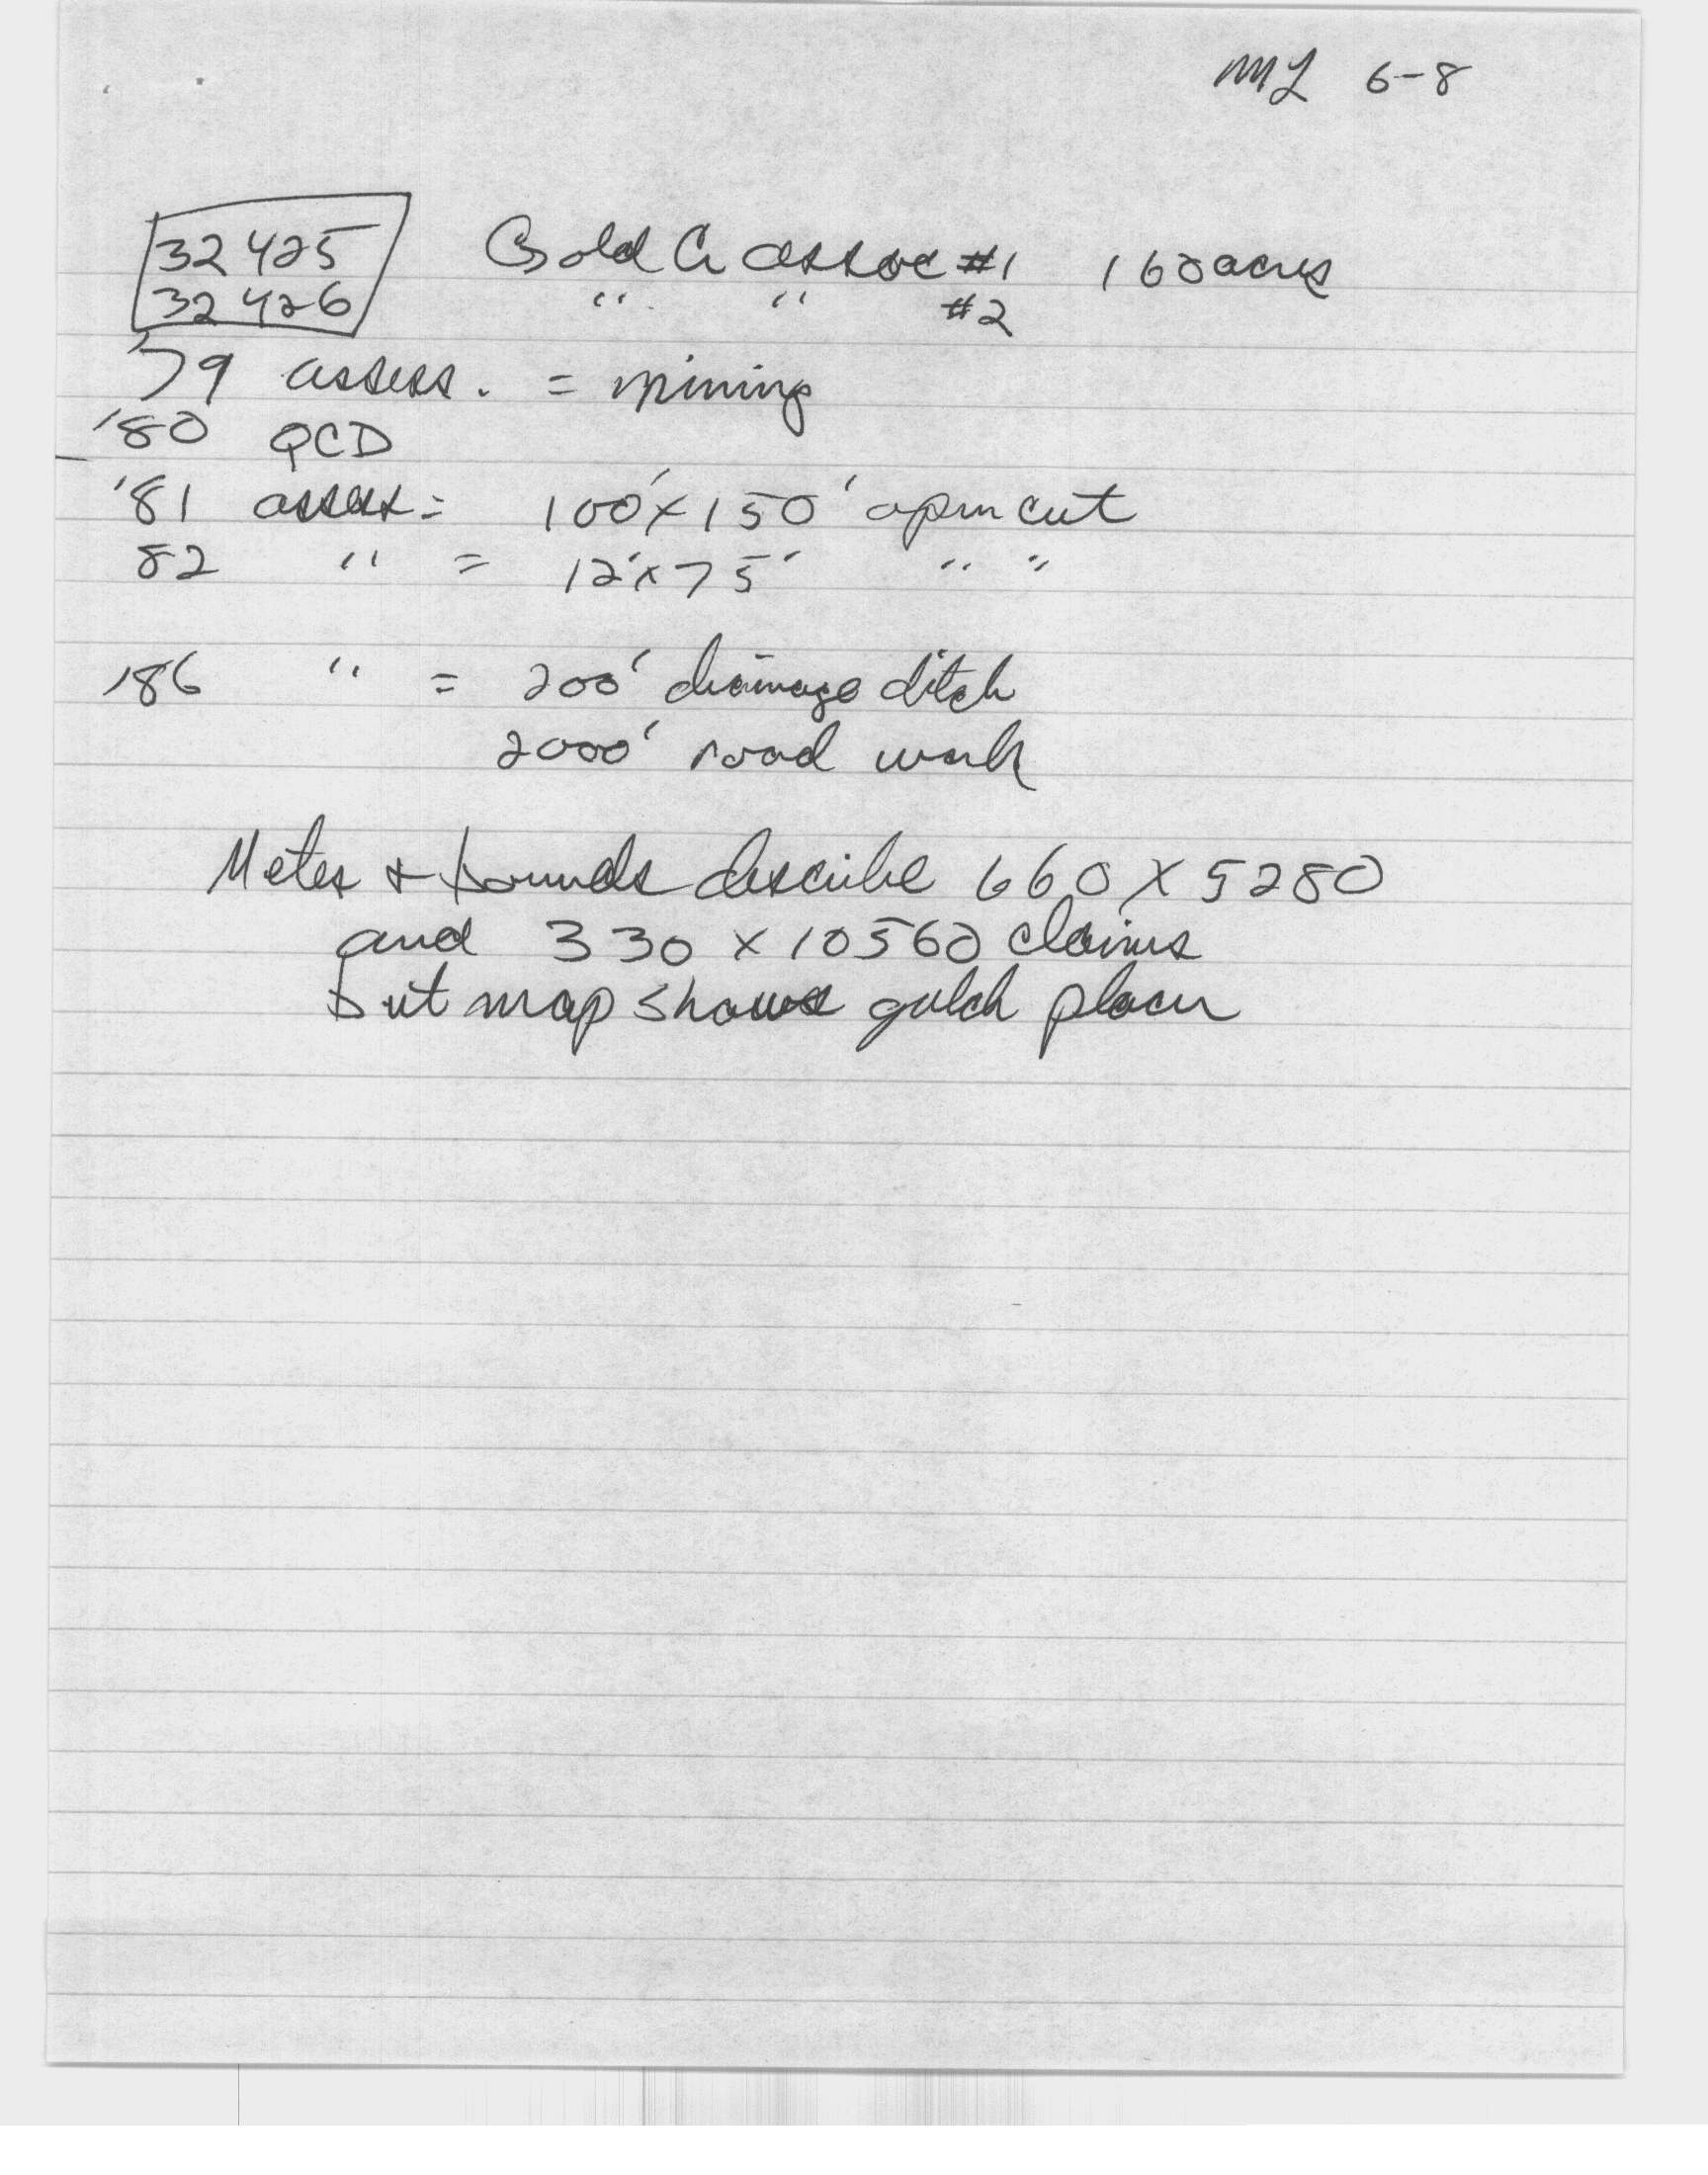 ML 6-8
32425 Gold Cr assoc #1 160 acres
32426 " " #2
'79 assess. = mining
'80 QCD
'81 assess = 100'x150' open cut
82 " = 12'x75' " "
'86 " = 200' drainage ditch
2000' road work
Metes & bounds describe 660 x 5280
and 330 x 10560 claims
but map shows gulch placer